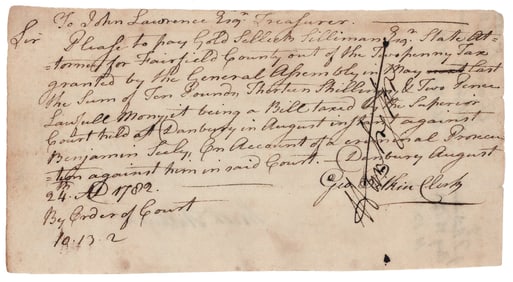 To John Lawrence Esqr. Treasurer.
Sir Please to pay Gold Selleck Silliman Esqr. State At-
=torney for Fairfield County out of the Two penny Tax
granted by the General Assembly in May last
the Sum of Ten Pounds Thirteen Shillings & Two Pence
Lawfull Money it being a Bill taxed by the Superior
Court held at Danbury in August inst. against
Benjamin Sealy, On Account of a criminal Prosecu
=tion against him in said Court. Danbury August
24th. AD 1782.
Geo Clerk
By Order of Court
10.13.2